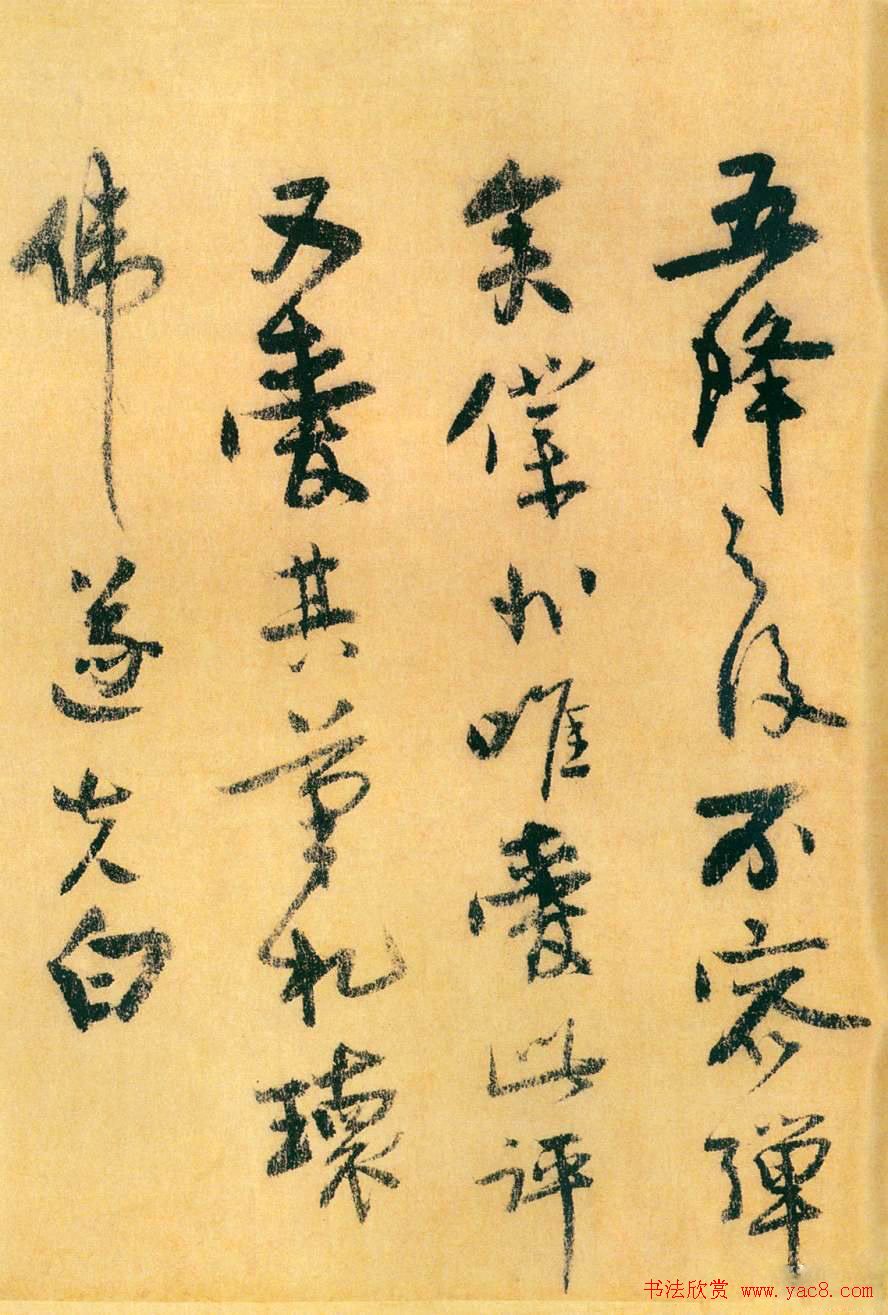 五降之後不容彈
矣僕非唯愛此評
又愛其筆札瓌
偉遂白
书法欣赏 www.yac8.com